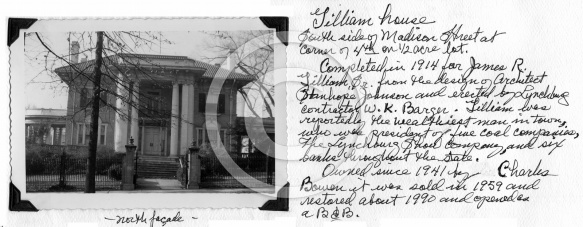 Gilliam house
South side of Madison Street at
corner of 4th on 1/2 acre lot.
Completed in 1914 for James R.
Gilliam, Jr. from the design of Architect
Stanhope Johnson and erected by Lynchburg
contractor W. K. Barger. Gilliam was
reportedly the wealthiest man in town,
who was president of five coal companies,
the Lynchburg Shoe Company, and six
banks throughout the State.
Owned since 1941 by Charles
Bowen it was sold in 1959 and
restored about 1990 and opened as
a B&B.
- north façade -
©